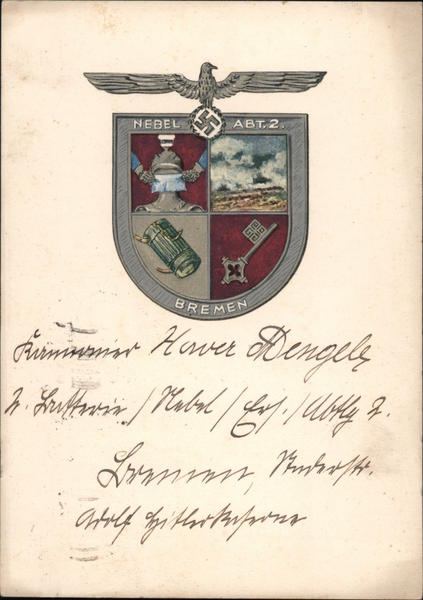 NEBEL ABT. 2.
BREMEN
Kanonier Xaver Dengel
2. Batterie / Nebel / Ers. / Abtlg 2.
Bremen,
Adolf Hitlerkaserne